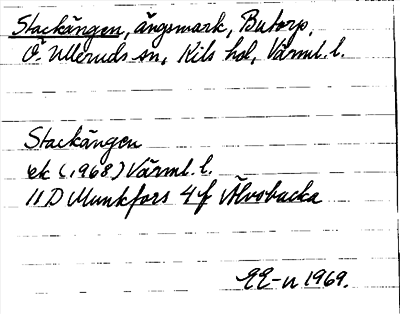 Stackängen, ängsmark, Butorp,
Ö. Ulleruds sn, Kils hd, Värml. l.
Stackängen
ek (1968) Värml. l.
11D Munkfors 4f Älvsbacka
EE-n 1969.